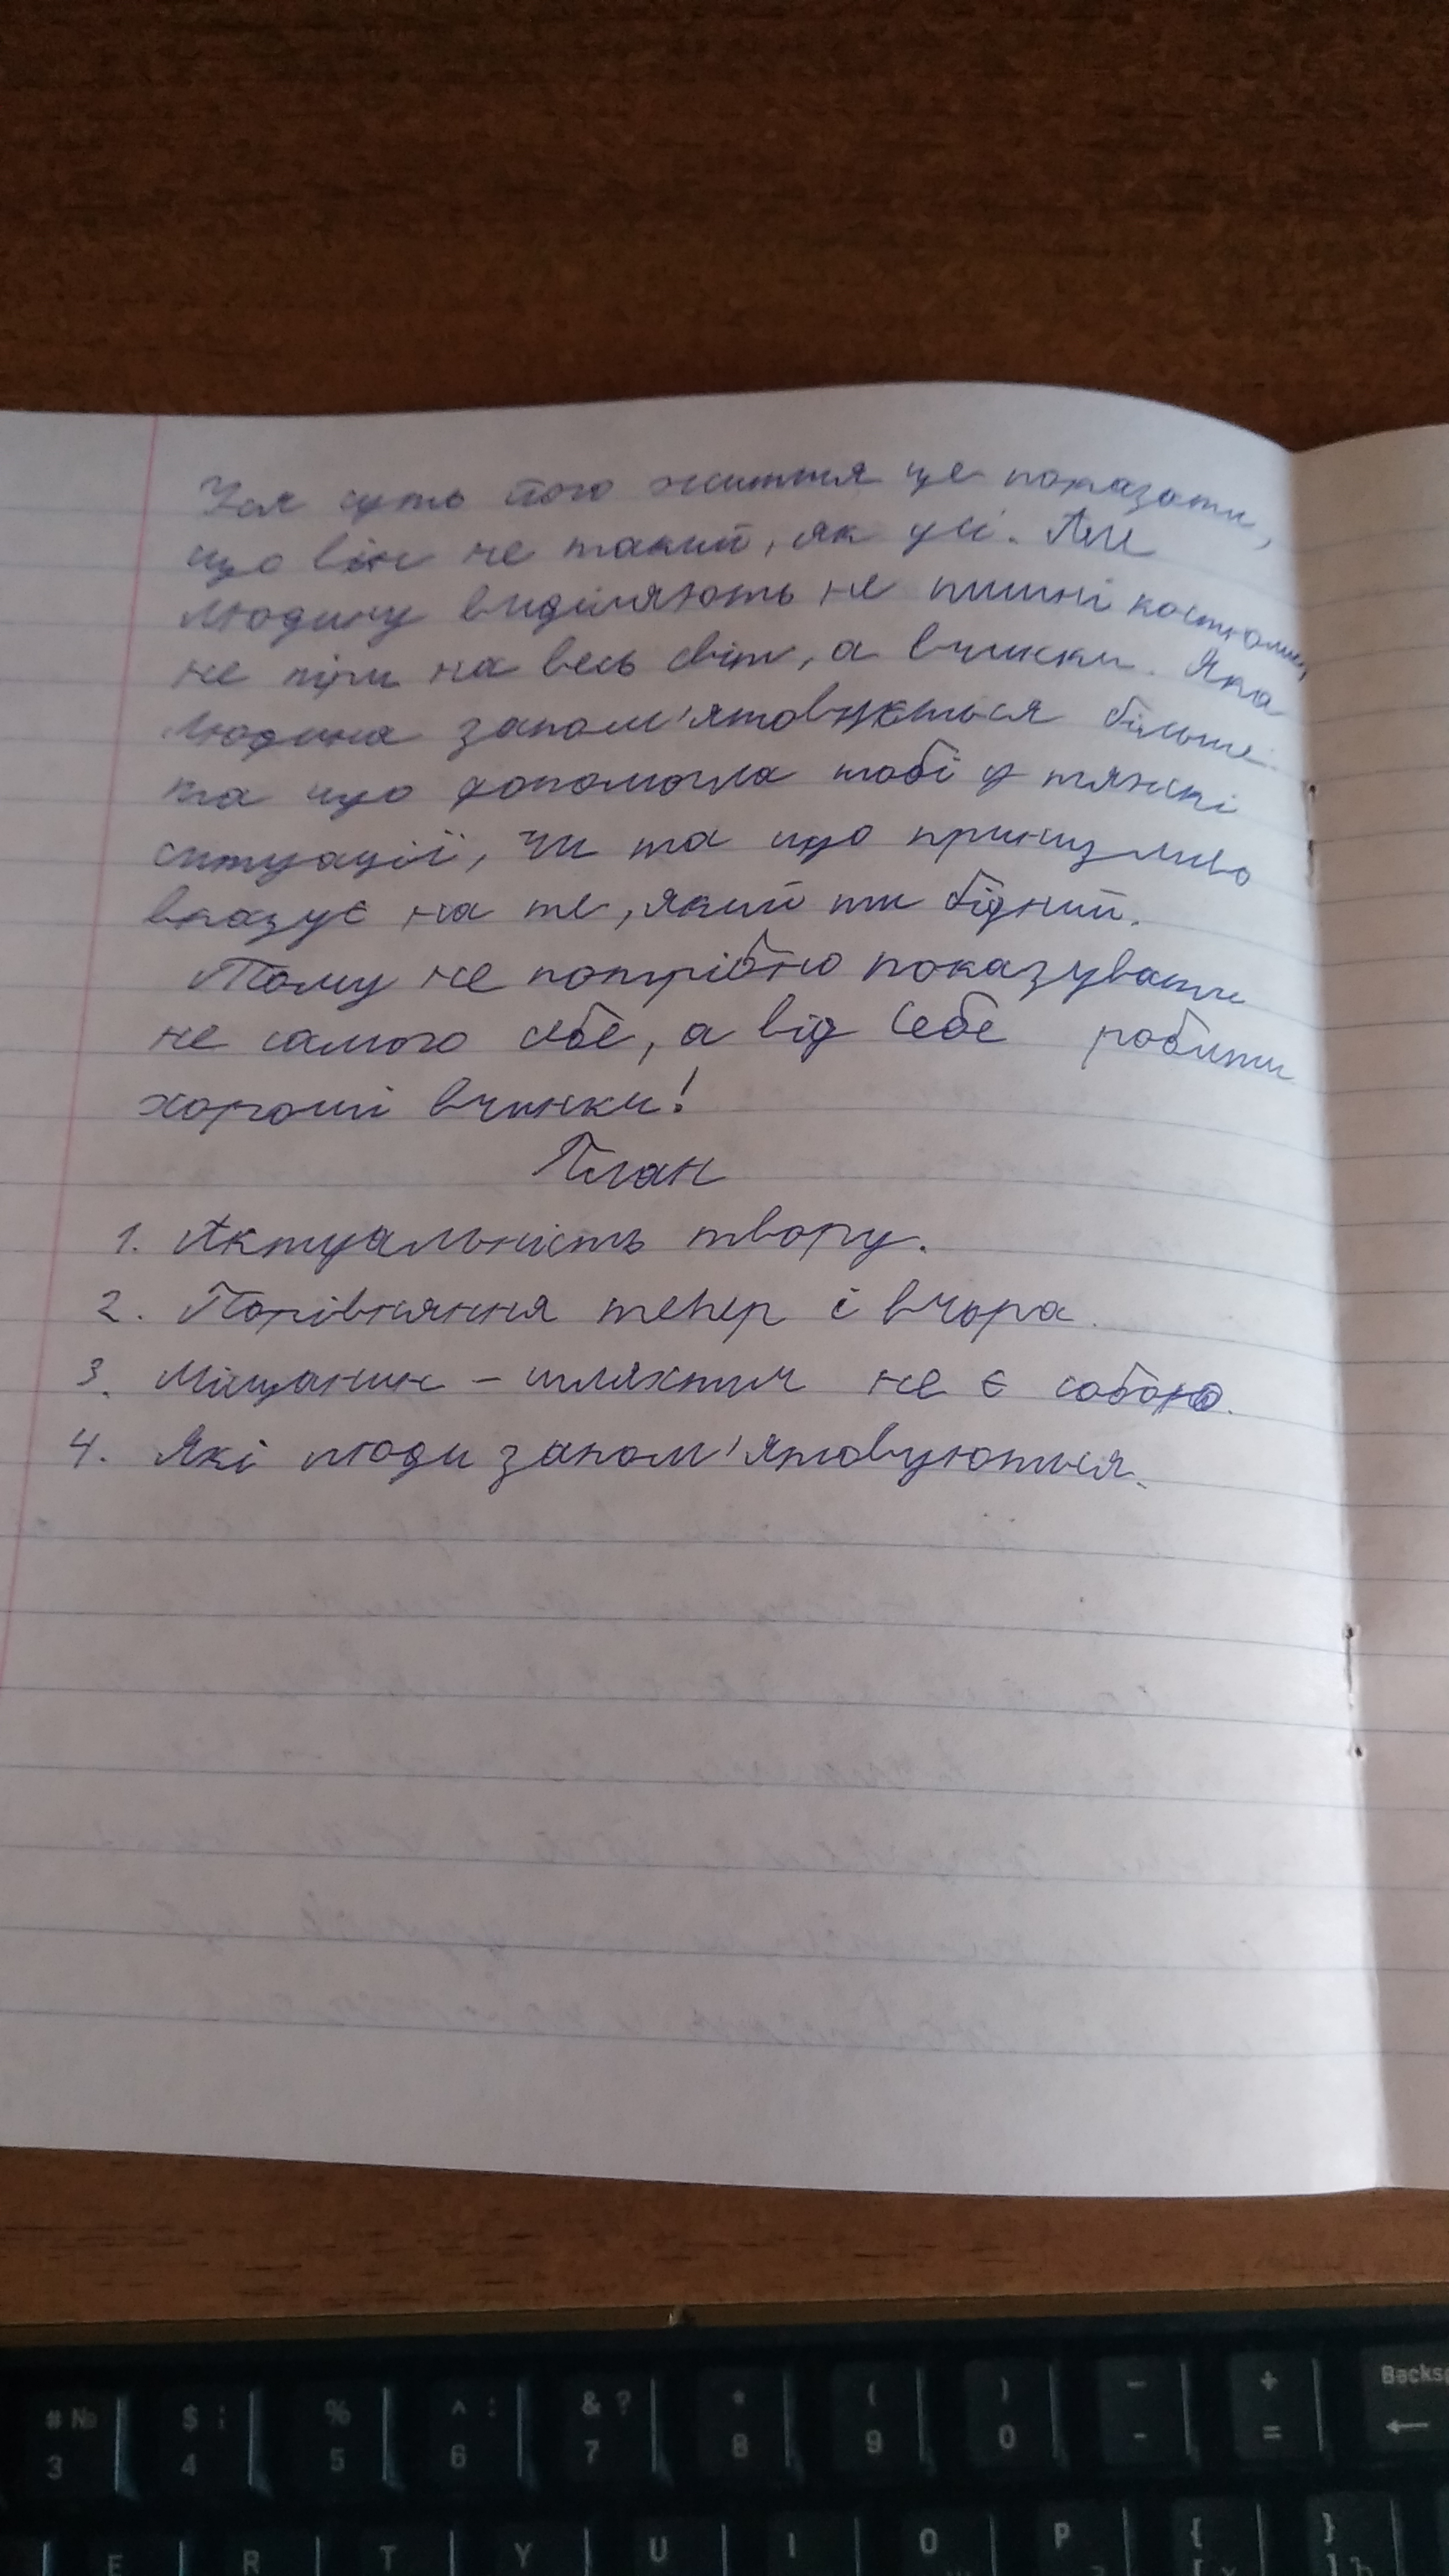 Уся суть його життя це показати,
що він не такий, як усі. Але
людину виділяють не пишні костюми,
не на весь світ, а вчинки. Яка
людина запам'ятовується більше
та що допомогла тобі у тяжкі
ситуації, чи та що принизливо
вказує на те, який ти бідний.
Тому не потрібно показувати
не самого себе, а від себе робити
хороші вчинки!
План
1. Актуальність твору.
2. Порівняння тепер і вчора.
3. Міщанин - шляхтич не є собою.
4. Які люди запам'ятовуються.
# № 3
$ ; 4
% 5
^ : 6
& ? 7
* 8
( 9
) 0
- -
+ =
Backs ←
E R T Y U I O P { [ } ]